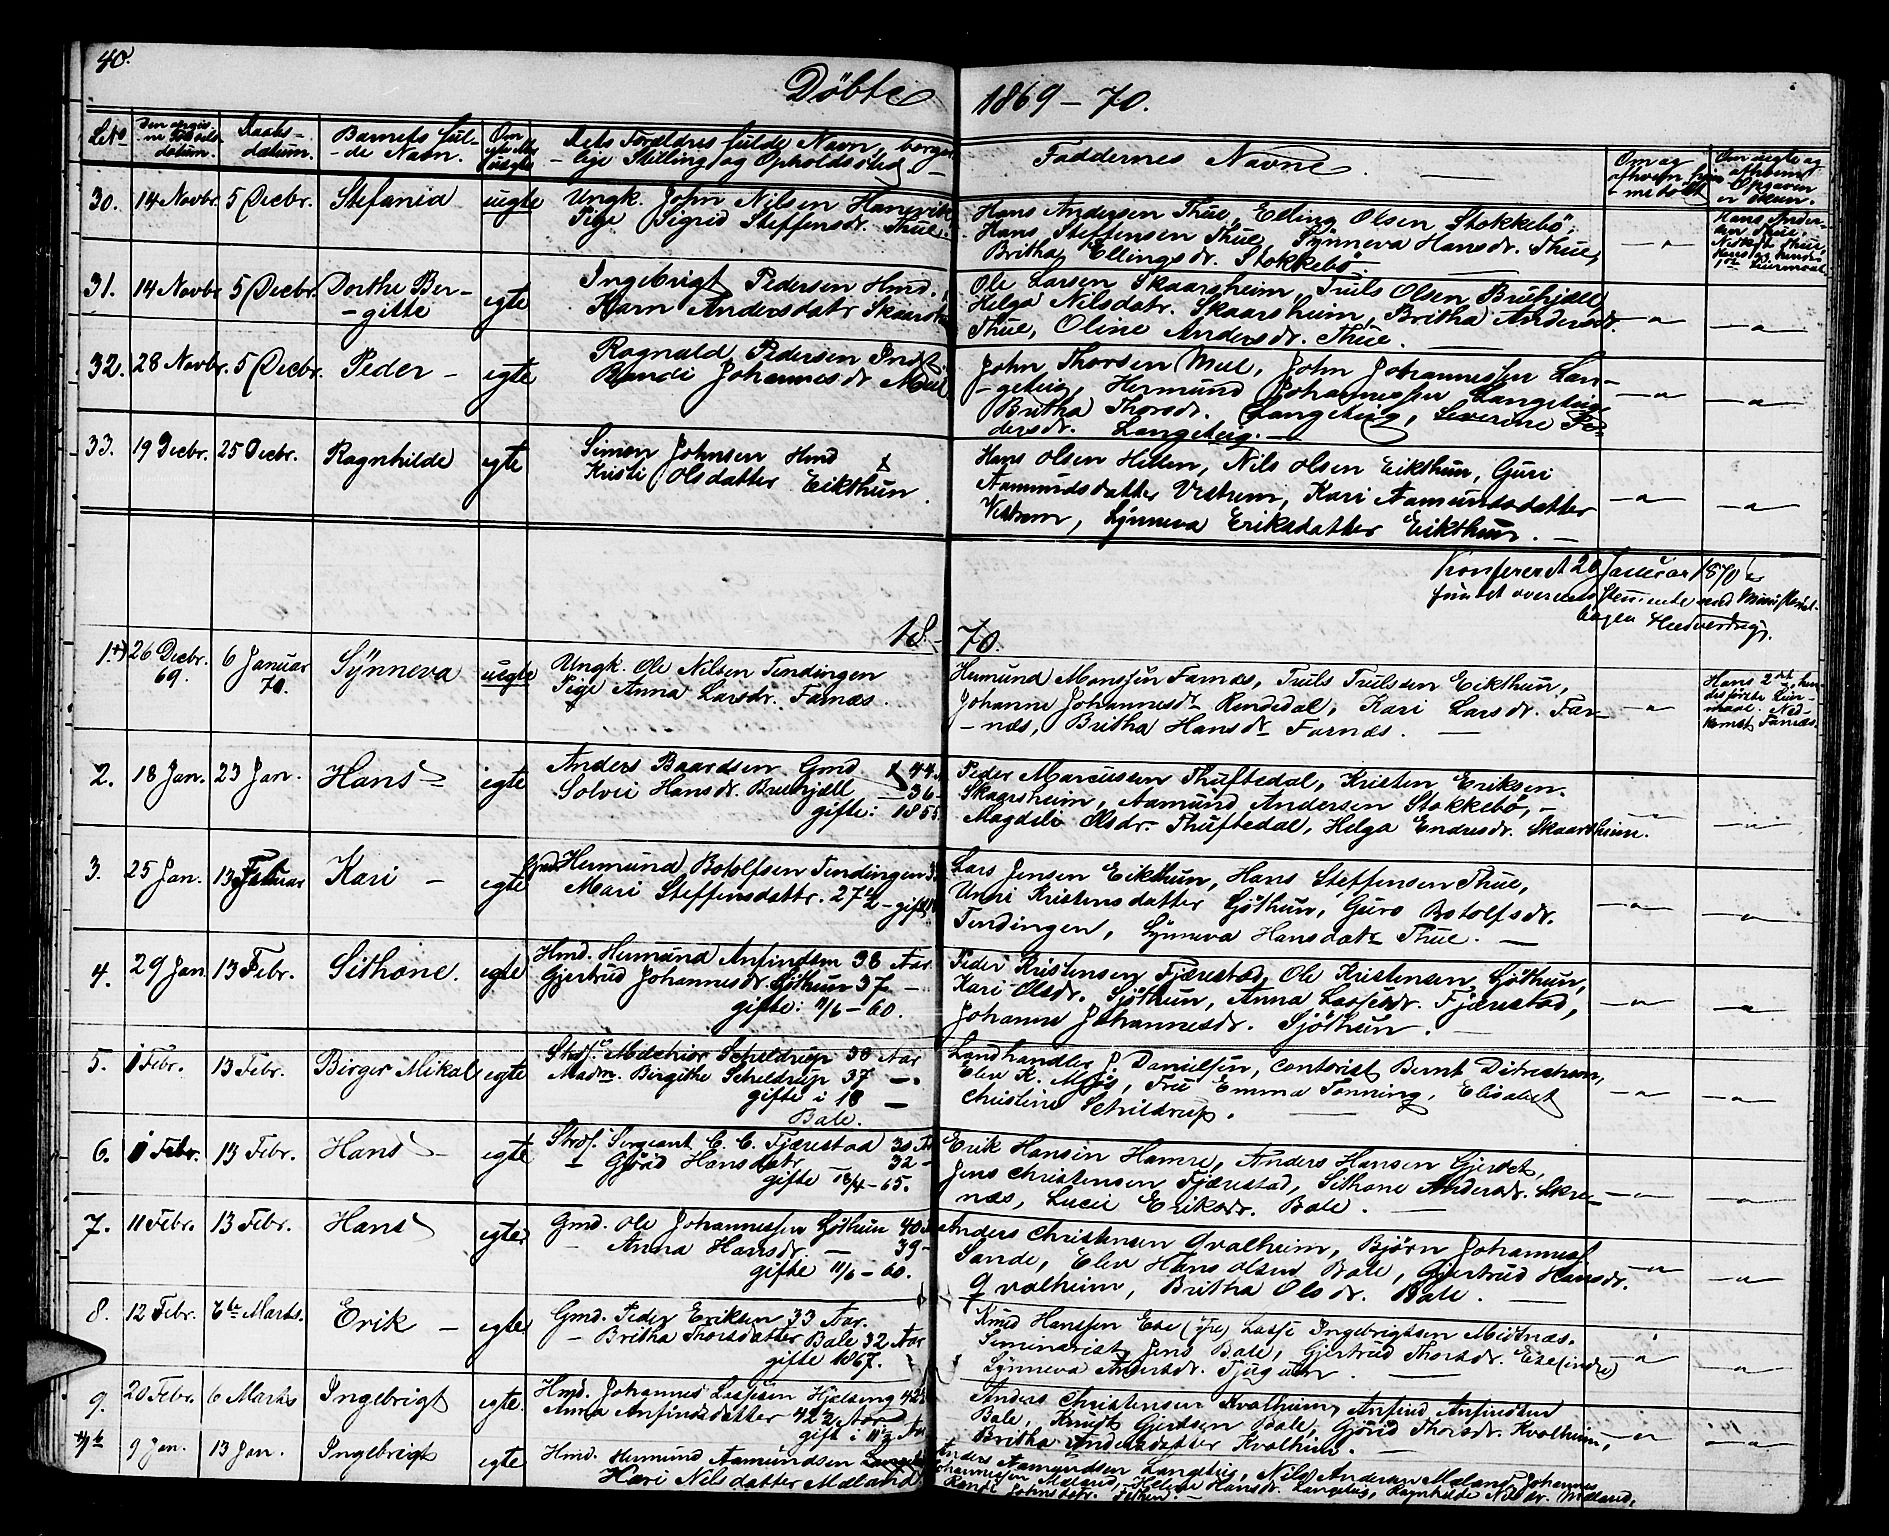 40.
Döbte 1869-70.
Den angivne Fødselsdatum. Daabsdatum. Barnets fulde Navn. Om egte eller uegte Dets Forældres fulde Navn, borgerlige Stilling og Opholdssted Faddernes Navne
30. 14 Novbr. 5 Decbr. Stefania uegte Ungk. John Nilsen
Pige Sigrid Steffensdr. Thue
Hans Andersen Thue, Elling Olsen Stokkebö,
Hans Steffensen Thue, Synneva Hansdr. Thue,
Britha Ellingsdr. Stokkebö.
31. 14 Novbr 5 Decbr. Dorthe Ber-
-gitte egte Ingebrigt Pedersen Hmd.
Karn Andersdatr Skaarsheim
Ole Larsen Skaarsheim, Truls Olsen Bruhjell,
Helga Nilsdatr. Skaarsheim, Britha Andersdr.
Thue, Oline Andersdr. Thue.
32. 28 Novbr. 5 Decbr. Peder - egte Ragnald Pedersen Indst.
Randi Johannesdr Muel
John Thorsen Muel, John Johannessen Lan-
-geteig, Hermund Johannessen Langeteig
Britha Thorsdr. Langeteig, Severine Pe-
dersdr. Langeteig. -
33. 19 Decbr. 25 Decbr. Ragnhilde egte Simon Johnsen Hmd
Kristi Olsdatter Eikthun.
Hans Olsen Hilten, Nils Olsen Eikthun, Guri
Aamundsdatter Vistrem, Kari Aamundsdatter
Vistrem, Synneva Eriksdatter Eikthun. -
Konfereret 20 Januar 1870
fundet overensstemmende med Ministerial-
bogen
18 70.
1. 26 Decbr. 69. 6 Januar 70. Synneva uegte Ungk. Ole Nilsen Tendingen
Pige Anna Larsdr. Farnæs.
Hermund Monssen Farnæs, Truls Trulssen Eikthun,
Johanne Johannesdr Rendedal, Kari Larsdr. Far-
-næs, Britha Hansdr Farnæs.
Hans 2det, hen-
des første Leier-
maal. Ned-
komst Farnæs.
2. 18 Jan. 23 Jan. Hans egte Anders Baardsen Gmd 44
Solvei Hansdr. Bruhjell 36
gifte: 1855.
Peder Marcussen Thuftedal, Kristen Eriksen
Skaarsheim, Aamund Andersen Stokkebö, -
Magdeli Olsdr. Thuftedal, Helga Endresdr. Skaarsheim.
3. 25 Jan. 13 Februar Kari - egte Gmd. Hermund Botolfsen Tendingen
Mari Steffensdattr. 27½ - gift:
Lars Jensen Eikthun, Hans Steffensen Thue,
Unni Kristensdatter Sjöthun, Guro Botolfsdr.
Tendingen, Synneva Hansdatr Thue.
4. 29 Jan 13 Febr. Sithone. egte Hmd. Hermund Anfindsen 38 Aar.
Gjertrud Johannesdr. Sjöthun 37 -
gifte: 11/6 - 60.
Peder Kristensen Fjærestad, Ole Kristensen Sjöthun,
Kari Olsdr. Sjöthun, Anna Lassesdr. Fjærestad,
Johanne Johannesdr. Sjöthun.
5. 1 Febr. 13 Febr. Birger Mikal egte Melchior Scheldrup 38 Aar
Madm. Birgithe Scheldrup 37 -
gifte i 18 -
Bale.
Landhandler J. Danielsen, Contorist Bernt Ditrichsen,
Elev K. Fru Emma Tonning, Elisabet
Christine Schildrup.
6. 1 Febr. 13 Febr. Hans egte Sergeant C. C. Fjærestad 30
Gjörid Hansdatr. 32 -
gifte 18/4 - 65.
Erik Hansen Hamre, Anders Hansen Gjerdet,
Jens Christensen Fjærestad, Sithone Andersdr. Skre-
næs, Lucie Eriksdr. Bale.
7. 11 Febr. 13 Febr. Hans egte Gmd. Ole Johannessen Sjöthun 40
Anna Hansdr. - 39 -
gifte 11/6 - 60.
Anders Christensen Qvalheim, Björn Johannes
Sande, Elev Hans Olsen Bale, Gjertrud Hansdr.
Qvalheim, Britha Olsdr. Bale.
8. 12 Febr. 6te Marts. Erik - egte Gmd. Peder Eriksen 33 Aar.
- Britha Thorsdatter Bale 32 Aar
gifte 1867.
Knud Hanssen Ese (ytre) Lasse Ingebrigtsen Midtnæs.
Seminarist Jens Bale, Gjertrud Thorsdr. Ese (indre)
Synneva Tjugum.
9. 20 Febr. 6 Marts Ingebrigt egte. Hmd. Johannes Lassesen Hjelseng 42½
Anna Anfindsdatter 42½ Aar
gift i 11½ Aar
Anders Christensen Kvalheim, Anfind Anfindsen
Bale, Knudt Gjertsen Bale, Gjörid Thorsdr. Kvalheim,
Britha Andersdatter Kvalheim.
9b 9 Jan. 13 Jan. Ingebrigt egte Hmd. Hermund Aamundsen
Kari Nilsdatter Mæland
Anders Aamundsen Langeteig, Nils Andersen Mæland, Johannes
Johannesen Mæland, Helene Hansdr. Langeteig, Ragnhilde Nilsdr. Mæland,
Randi Johnsdtr.